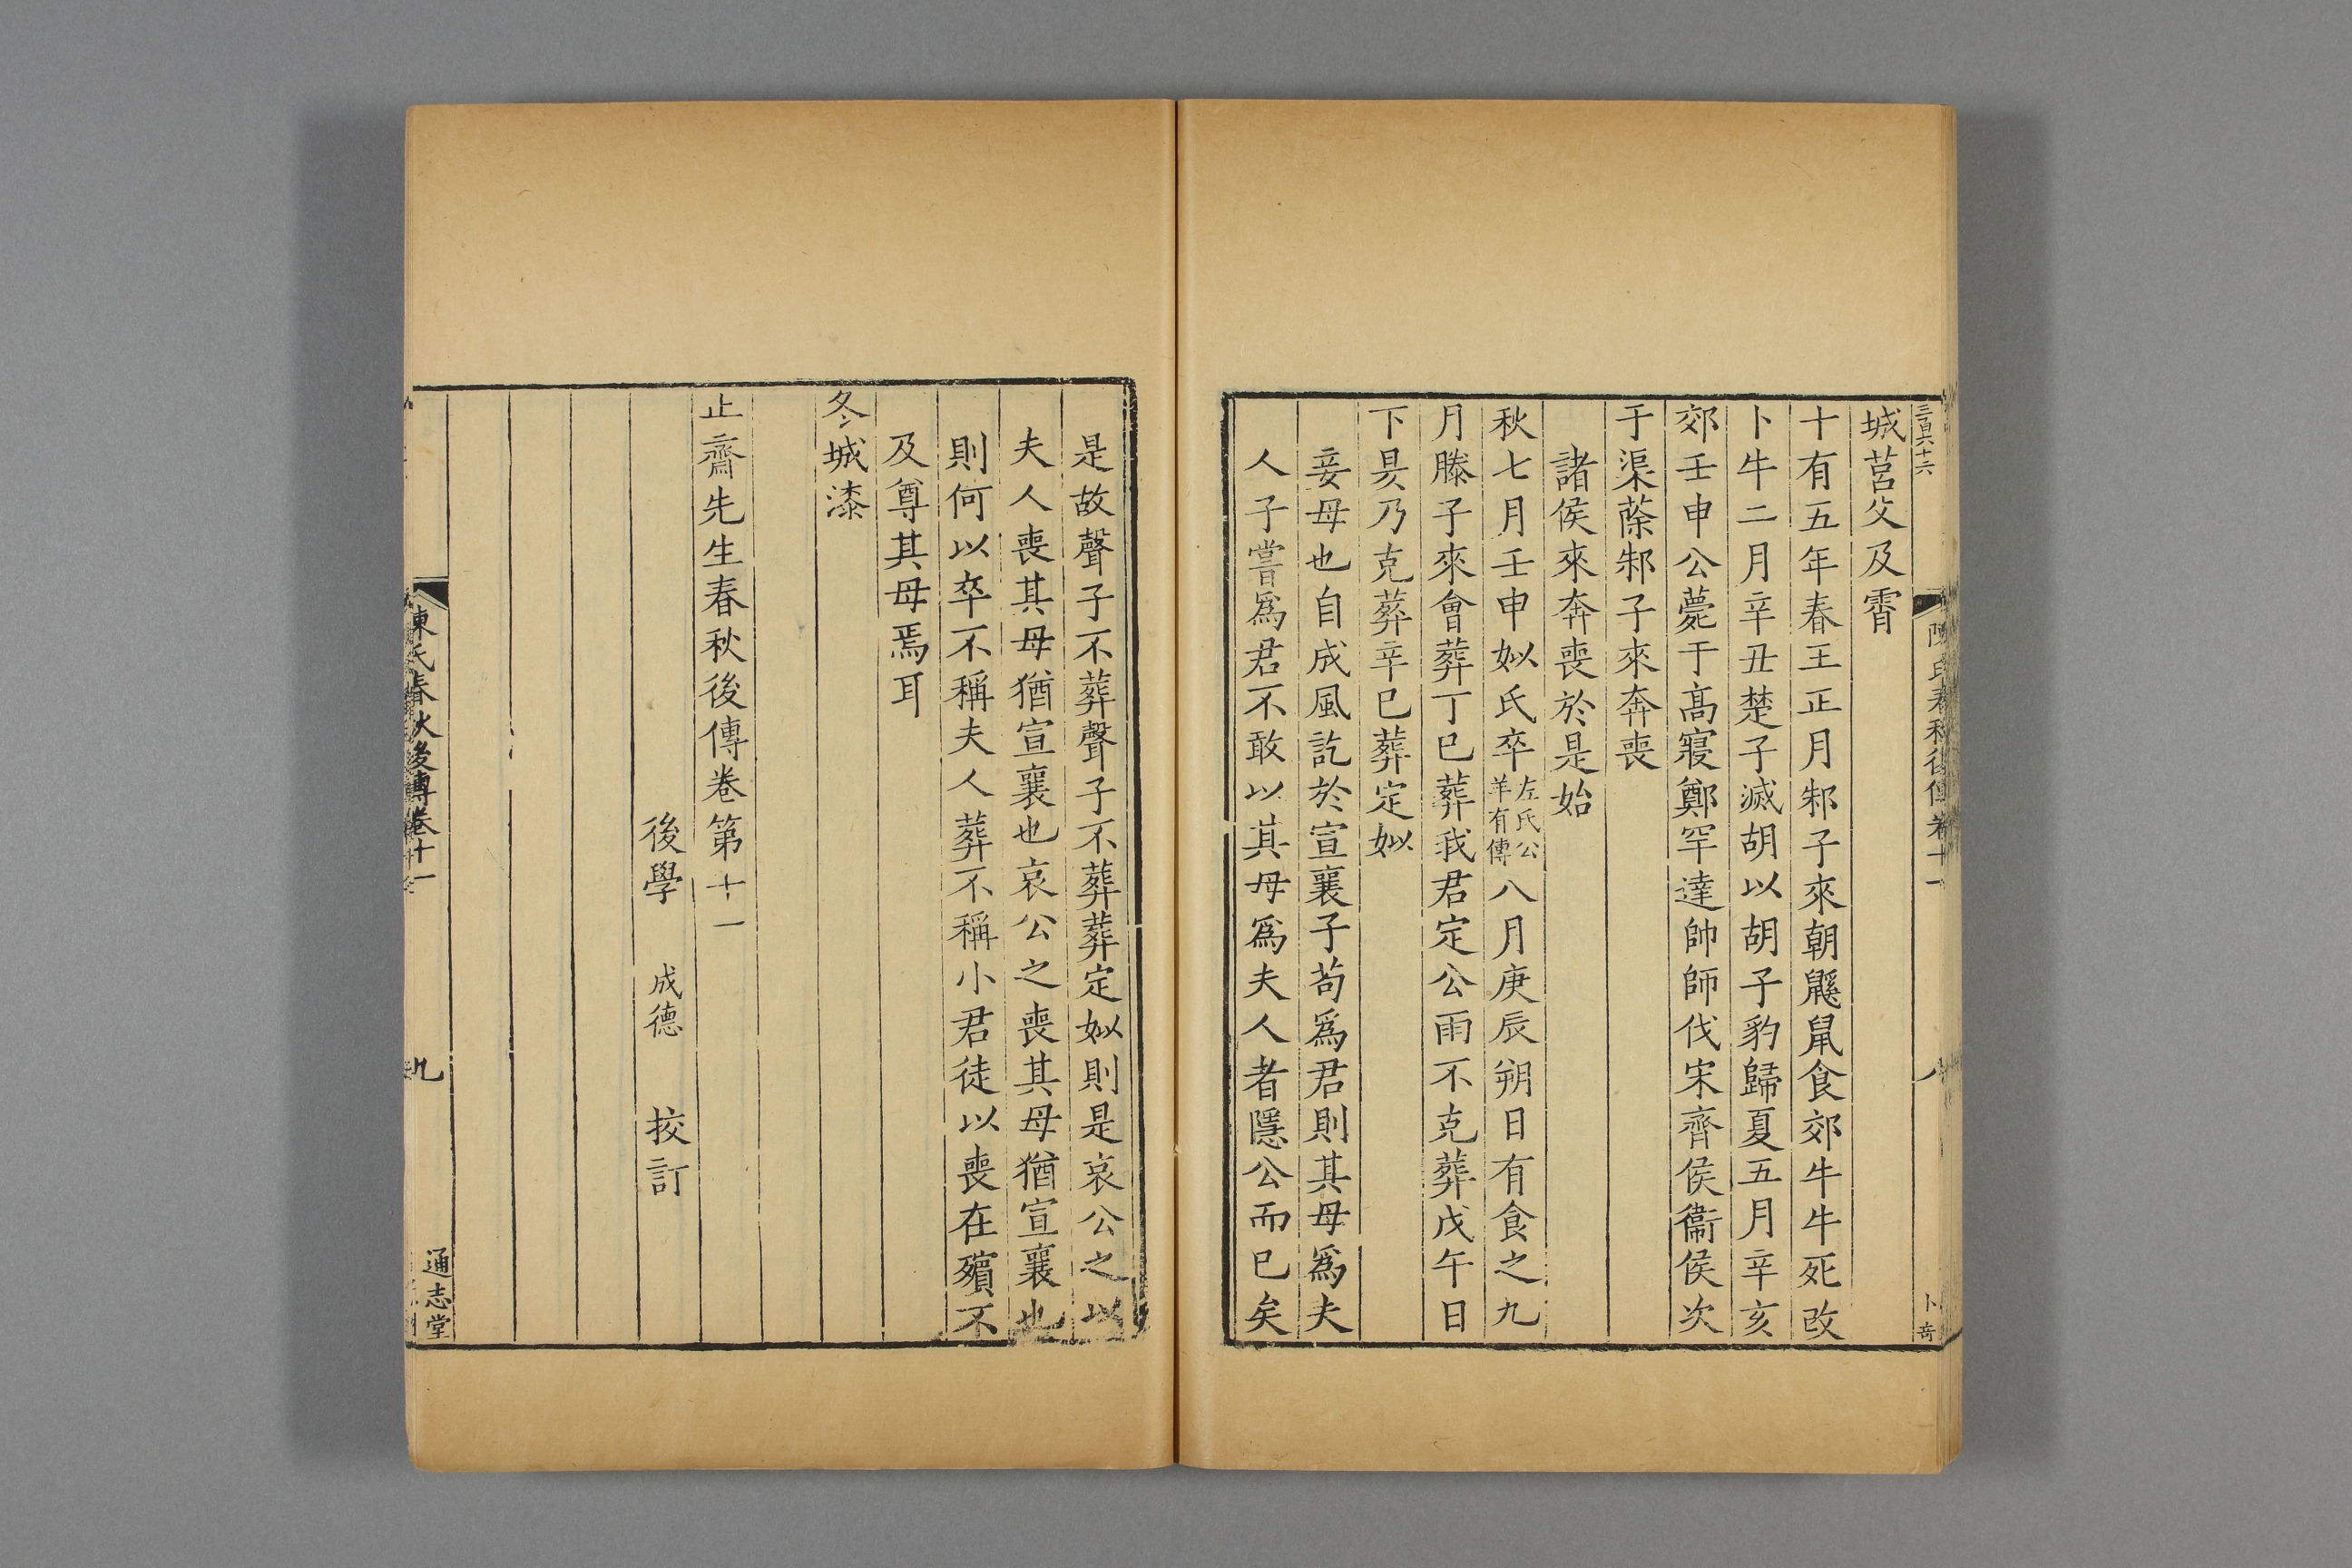 三百六十六
陳氏春秋後傳卷十一
八
卜奇
城莒父及霄
十有五年春王正月邾子來朝鼷鼠食郊牛牛死改
卜牛二月辛丑楚子滅胡以胡子豹歸夏五月辛亥
郊壬申公薨于高寢鄭罕達帥師伐宋齊侯衞侯次
于渠蒢邾子來奔喪
諸侯來奔喪於是始
秋七月壬申姒氏卒左氏公羊有傳八月庚辰朔日有食之九
月滕子來會葬丁巳葬我君定公雨不克葬戊午日
下昃乃克葬辛巳葬定姒
妾母也自成風訖於宣襄子茍爲君則其母爲夫
人子嘗爲君不敢以其母爲夫人者隱公而已矣
是故聲子不葬聲子不葬葬定姒則是哀公之以
夫人喪其母猶宣襄也哀公之喪其母猶宣襄也
則何以卒不稱夫人葬不稱小君徒以喪在殯不
及尊其母焉耳
冬城漆
止齋先生春秋後傳卷第十一
後學 成德 挍訂
陳氏春秋後傳卷十一
九
通志堂